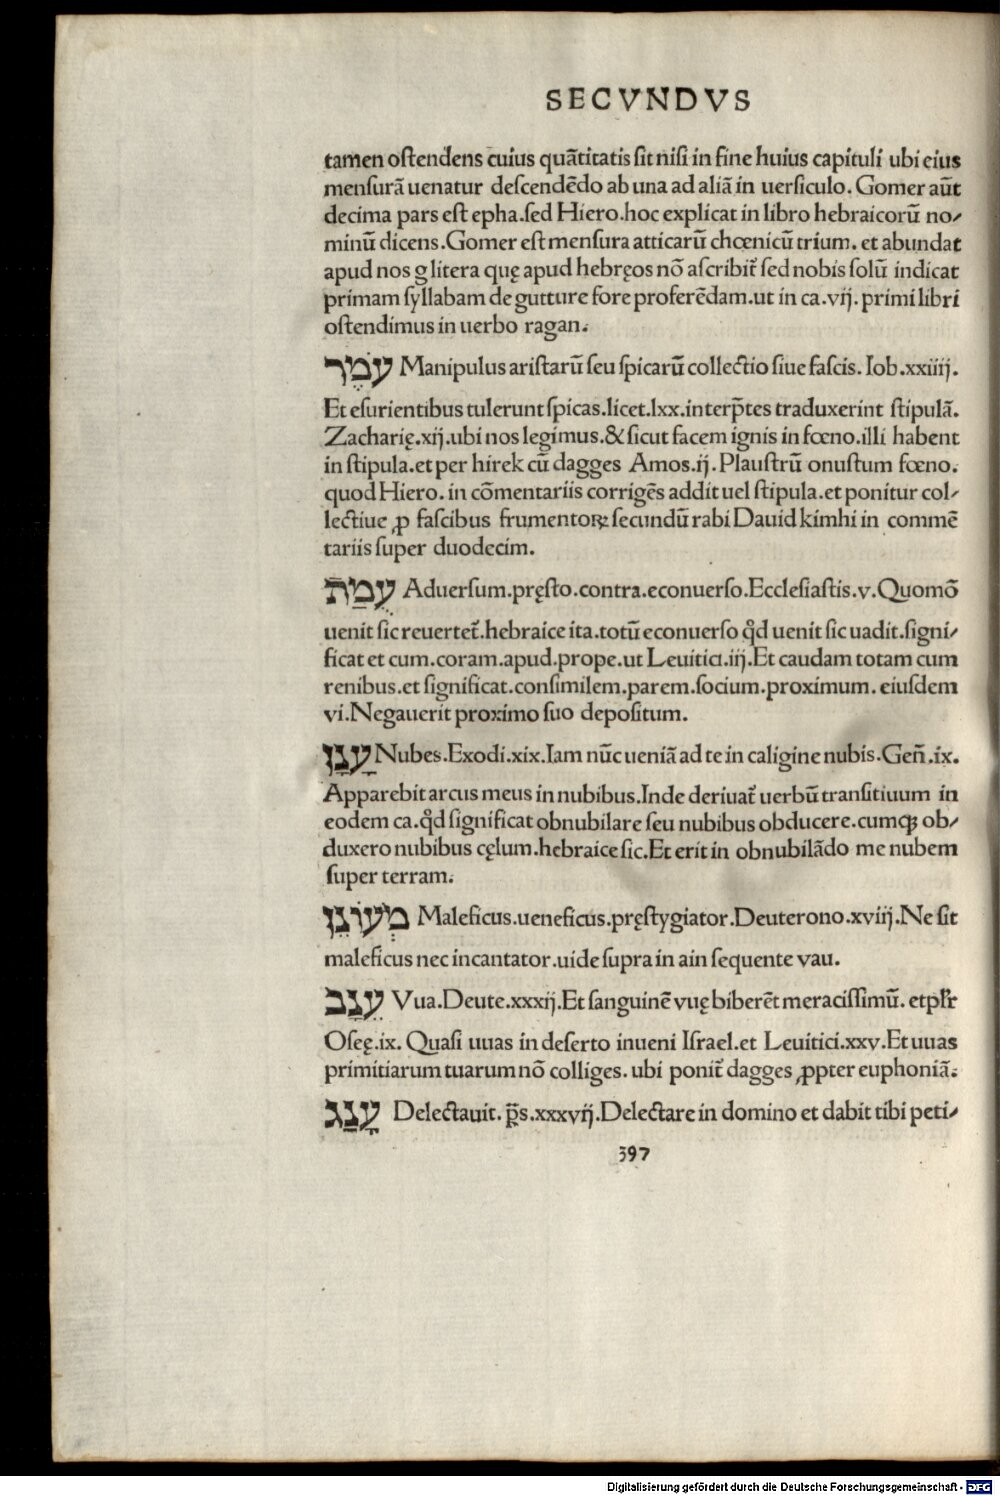 SECVNDVS
tamen oſtendens cuius quãtitatis ſit niſi in fine huius capituli ubi eius
menſurã uenatur deſcendẽdo ab una ad aliã in uerſiculo. Gomer aũt
decima pars eſt epha.ſed Hiero.hoc explicat in libro hebraicorũ no⸗
minũ dicens.Gomer eſt menſura atticarũ chœnicũ trium. et abundat
apud nos g litera quę apud hebręos nõ aſcribit᷑ ſed nobis ſolũ indicat
primam ſyllabam de gutture fore proferẽdam.ut in ca.vij. primi libri
oſtendimus in uerbo ragan.
עֹמֶר Manipulus ariſtarũ ſeu ſpicarũ collectio ſiue faſcis. Iob.xxiiij.
Et eſurientibus tulerunt ſpicas.licet.lxx.interp̃tes traduxerint ſtipulã.
Zacharię.xij.ubi nos legimus.&ſicut facem ignis in fœno.illi habent
in ſtipula.et per hirek cũ dagges Amos.ij.Plauſtrũ onuſtum fœno.
quod Hiero. in cõmentariis corrigẽs addit uel ſtipula.et ponitur col⸗
lectiue ꝓ faſcibus frumentoꝝ ſecundũ rabi Dauid kimhi in commẽ
tariis ſuper duodecim.
עֻמַּת Aduerſum.pręſto.contra.econuerſo.Eccleſiaſtis.v.Quomõ
uenit ſic reuertet᷑.hebraice ita.totũ econuerſo qd̓ uenit ſic uadit.ſigni⸗
ficat et cum.coram.apud.prope.ut Leuitici.iij.Et caudam totam cum
renibus.et ſignificat.conſimilem.parem.ſocium.proximum. eiuſdem
vi.Negauerit proximo ſuo depoſitum.
עָנָן Nubes.Exodi.xix.Iam nũc ueniã ad te in caligine nubis.Geñ.ix.
Apparebit arcus meus in nubibus.Inde deriuat᷑ uerbũ tranſitiuum in
eodem ca.qd̓ ſignificat obnubilare ſeu nubibus obducere.cumqꝫ ob⸗
duxero nubibus cęlum.hebraice ſic.Et erit in obnubilãdo me nubem
ſuper terram.
מְעוֹנֵן Maleficus.ueneficus.pręſtygiator.Deuterono.xviij.Ne ſit
maleficus nec incantator.uide ſupra in ain ſequente vau.
עֵנָב Vua.Deute.xxxij.Et ſanguinẽ vuę biberẽt meraciſſimũ. et pl̃r
Oſeę.ix. Quaſi uuas in deſerto inueni Iſrael.et Leuitici.xxv.Et uuas
primitiarum tuarum nõ colliges. ubi ponit᷑ dagges ꝓpter euphoniã.
עָנַג Delectauit. p̃s.xxxvij.Delectare in domino et dabit tibi peti⸗
397
Digitalisierung gefördert durch die Deutsche Forschungsgemeinschaft - DFG